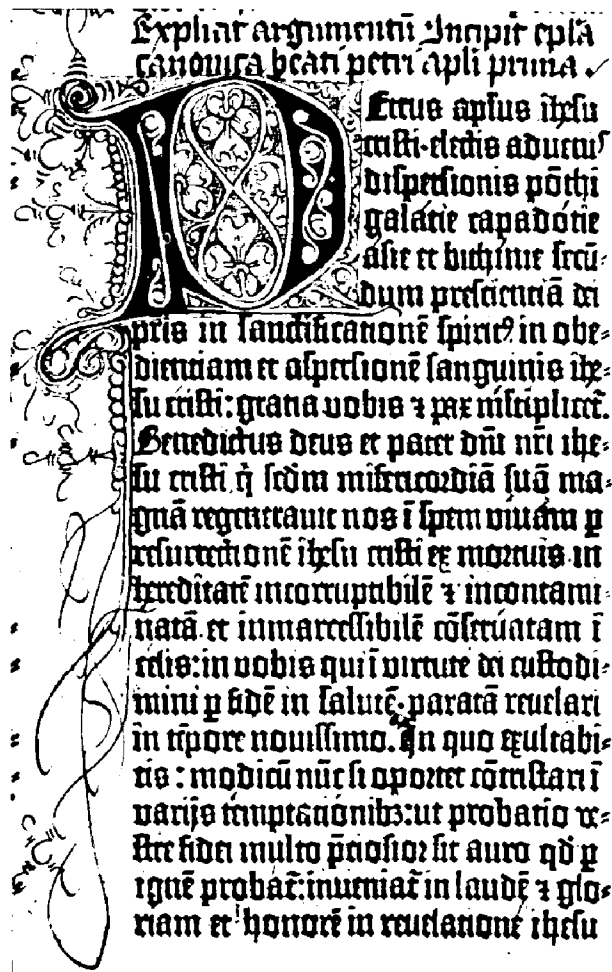 Explicit argumentū Incipit epl̄a
canonica beati petri apl̄i prima
Petrus apl̄us ih̄esu
cristi·electis aduenis
dispersionis pōthi
galatie capadotie
asie et bithinie secū-
dum prescientiā dei
pris in sanctificationē spiritꝰ in obe-
dientiam et aspersionē sanguinis ihe-
su cristi: gratia vobis ⁊ pax m̄ltiplicet̄.
Benedictus deus et pater dn̄i nr̄i ihe-
su cristi q̄ scd̄m misericordiā suā ma-
gnā regenerauit nos ī spem viuam p̱
resurrectionē ih̄esu cristi ex mortuis in
hereditatē incorruptibilē ⁊ incontami-
natā et inmarcessibilē cōseruatam ī
celis: in vobis qui ī virtute dei custodi-
mini p̱ fidē in salutē·paratā reuelari
in tēpore nouissimo. In quo exultabi-
tis : modicū nūc si oportet cōtristari ī
varijs temptationibꝫ: ut probatio ve-
stre fidei multo p̄ciosior sit auro qd̄ p̱
ignē probat̄: inueniat̄ in laudē ⁊ glo-
riam et honorē in reuelatione ihesu